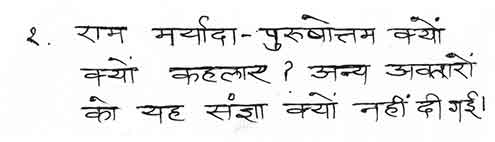 १. राम मर्यादा-पुरुषोत्तम क्यों
क्यों कहलाए? अन्य अवतारों
को यह संज्ञा क्यों नहीं दी गई।